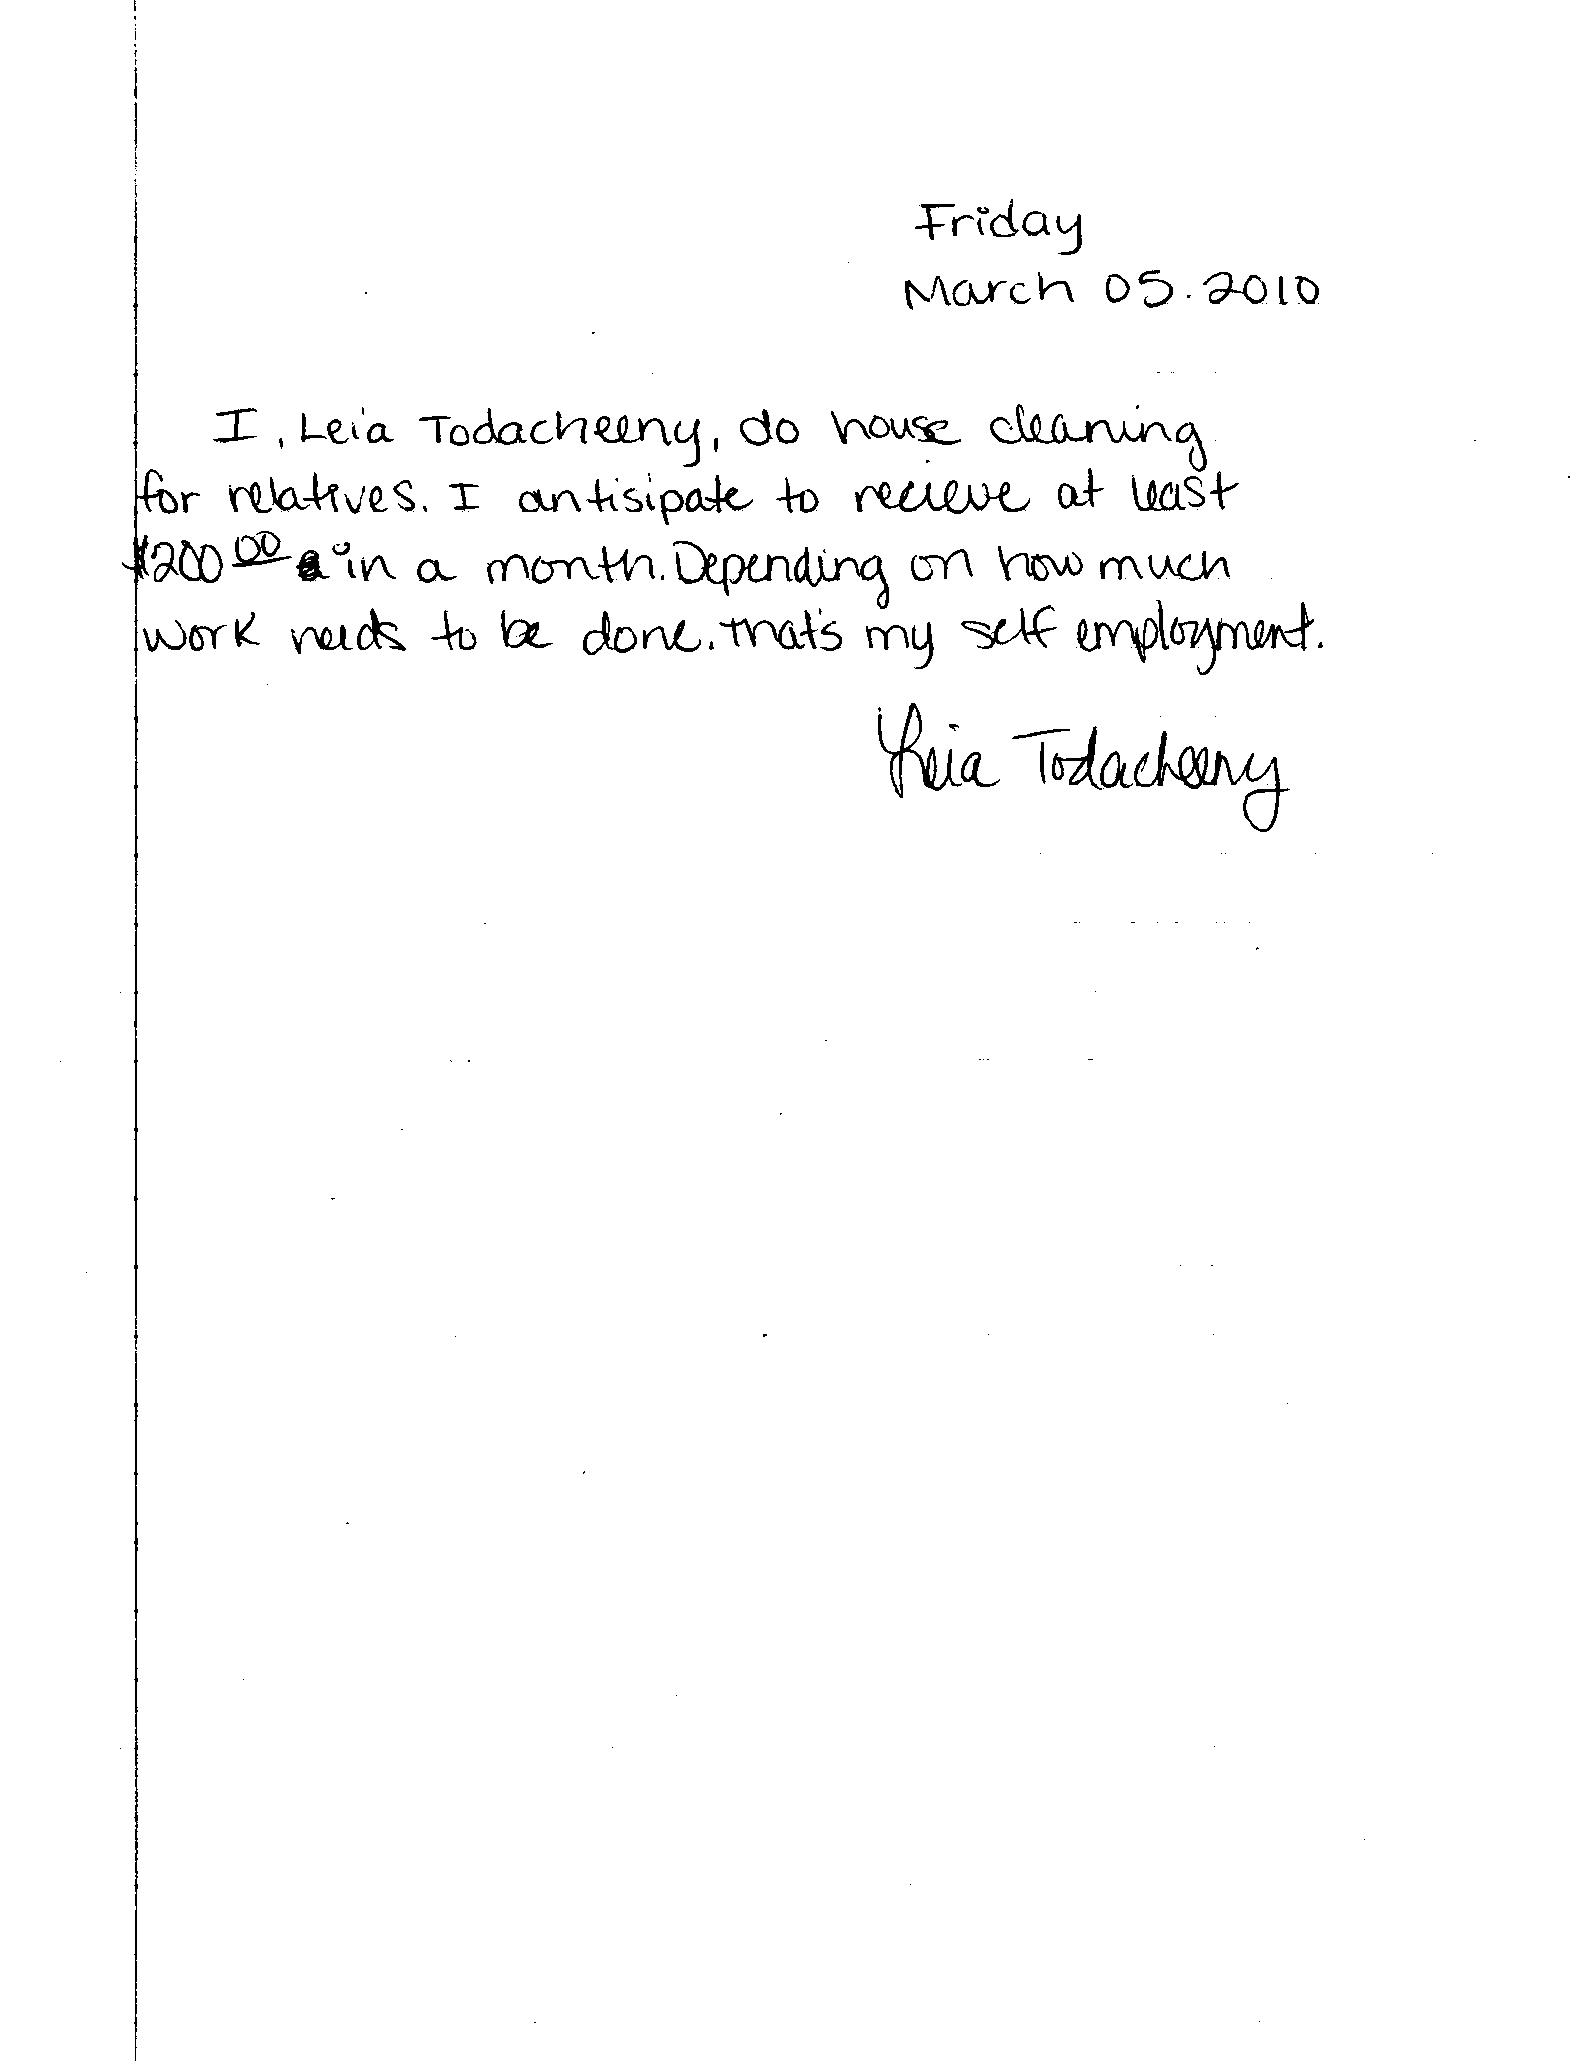 Friday
March 05.2010
I, Leia Todacheeny, do house cleaning
for relatives. I antisipate to recieve at least
$200.00 in a month. Depending on how much
work needs to be done. that's my self employment.
Leia Todacheeny